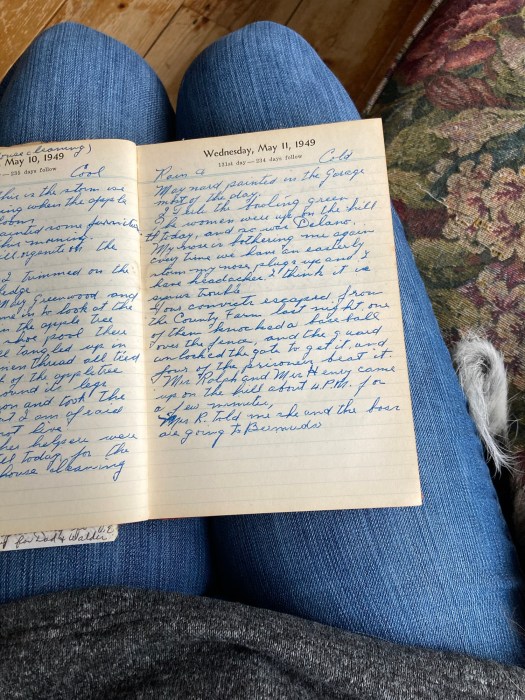 housecleaning)
May 10, 1949
235 days follow
Cool
this is the storm we
ing when the apple
painted some furniture
this morning.
organ the
I trimmed on the
Greenwood and
me in to look at the
the apple tree
poor
all tangled up in
thread all tied
of the appletree
around it legs
on and took the
I am afraid
not live
helpers were
ill today for the
house cleaning
for Dad & Walker
Wednesday, May 11, 1949
131st day — 234 days follow
Rain
Cold
Maynard painted in the garage
most of the day,
I fed the bowling green
The women were up on the hill
today, and so was Delano.
My nose is bothering me again
every time we have an easterly
storm my nose plugs up and I
have headaches I think it is
sinus trouble
Four convicts escaped from
the County Farm last night, one
of them knocked a baseball
over the fence, and the guard
unlocked the gate to get it, and
four of the prisoners beat it
Mrs. Ralph and Mrs Henry came
up on the hill about 4 P.M. for
a few minutes,
Mrs R. told me she and the boss
are going to Bermuda